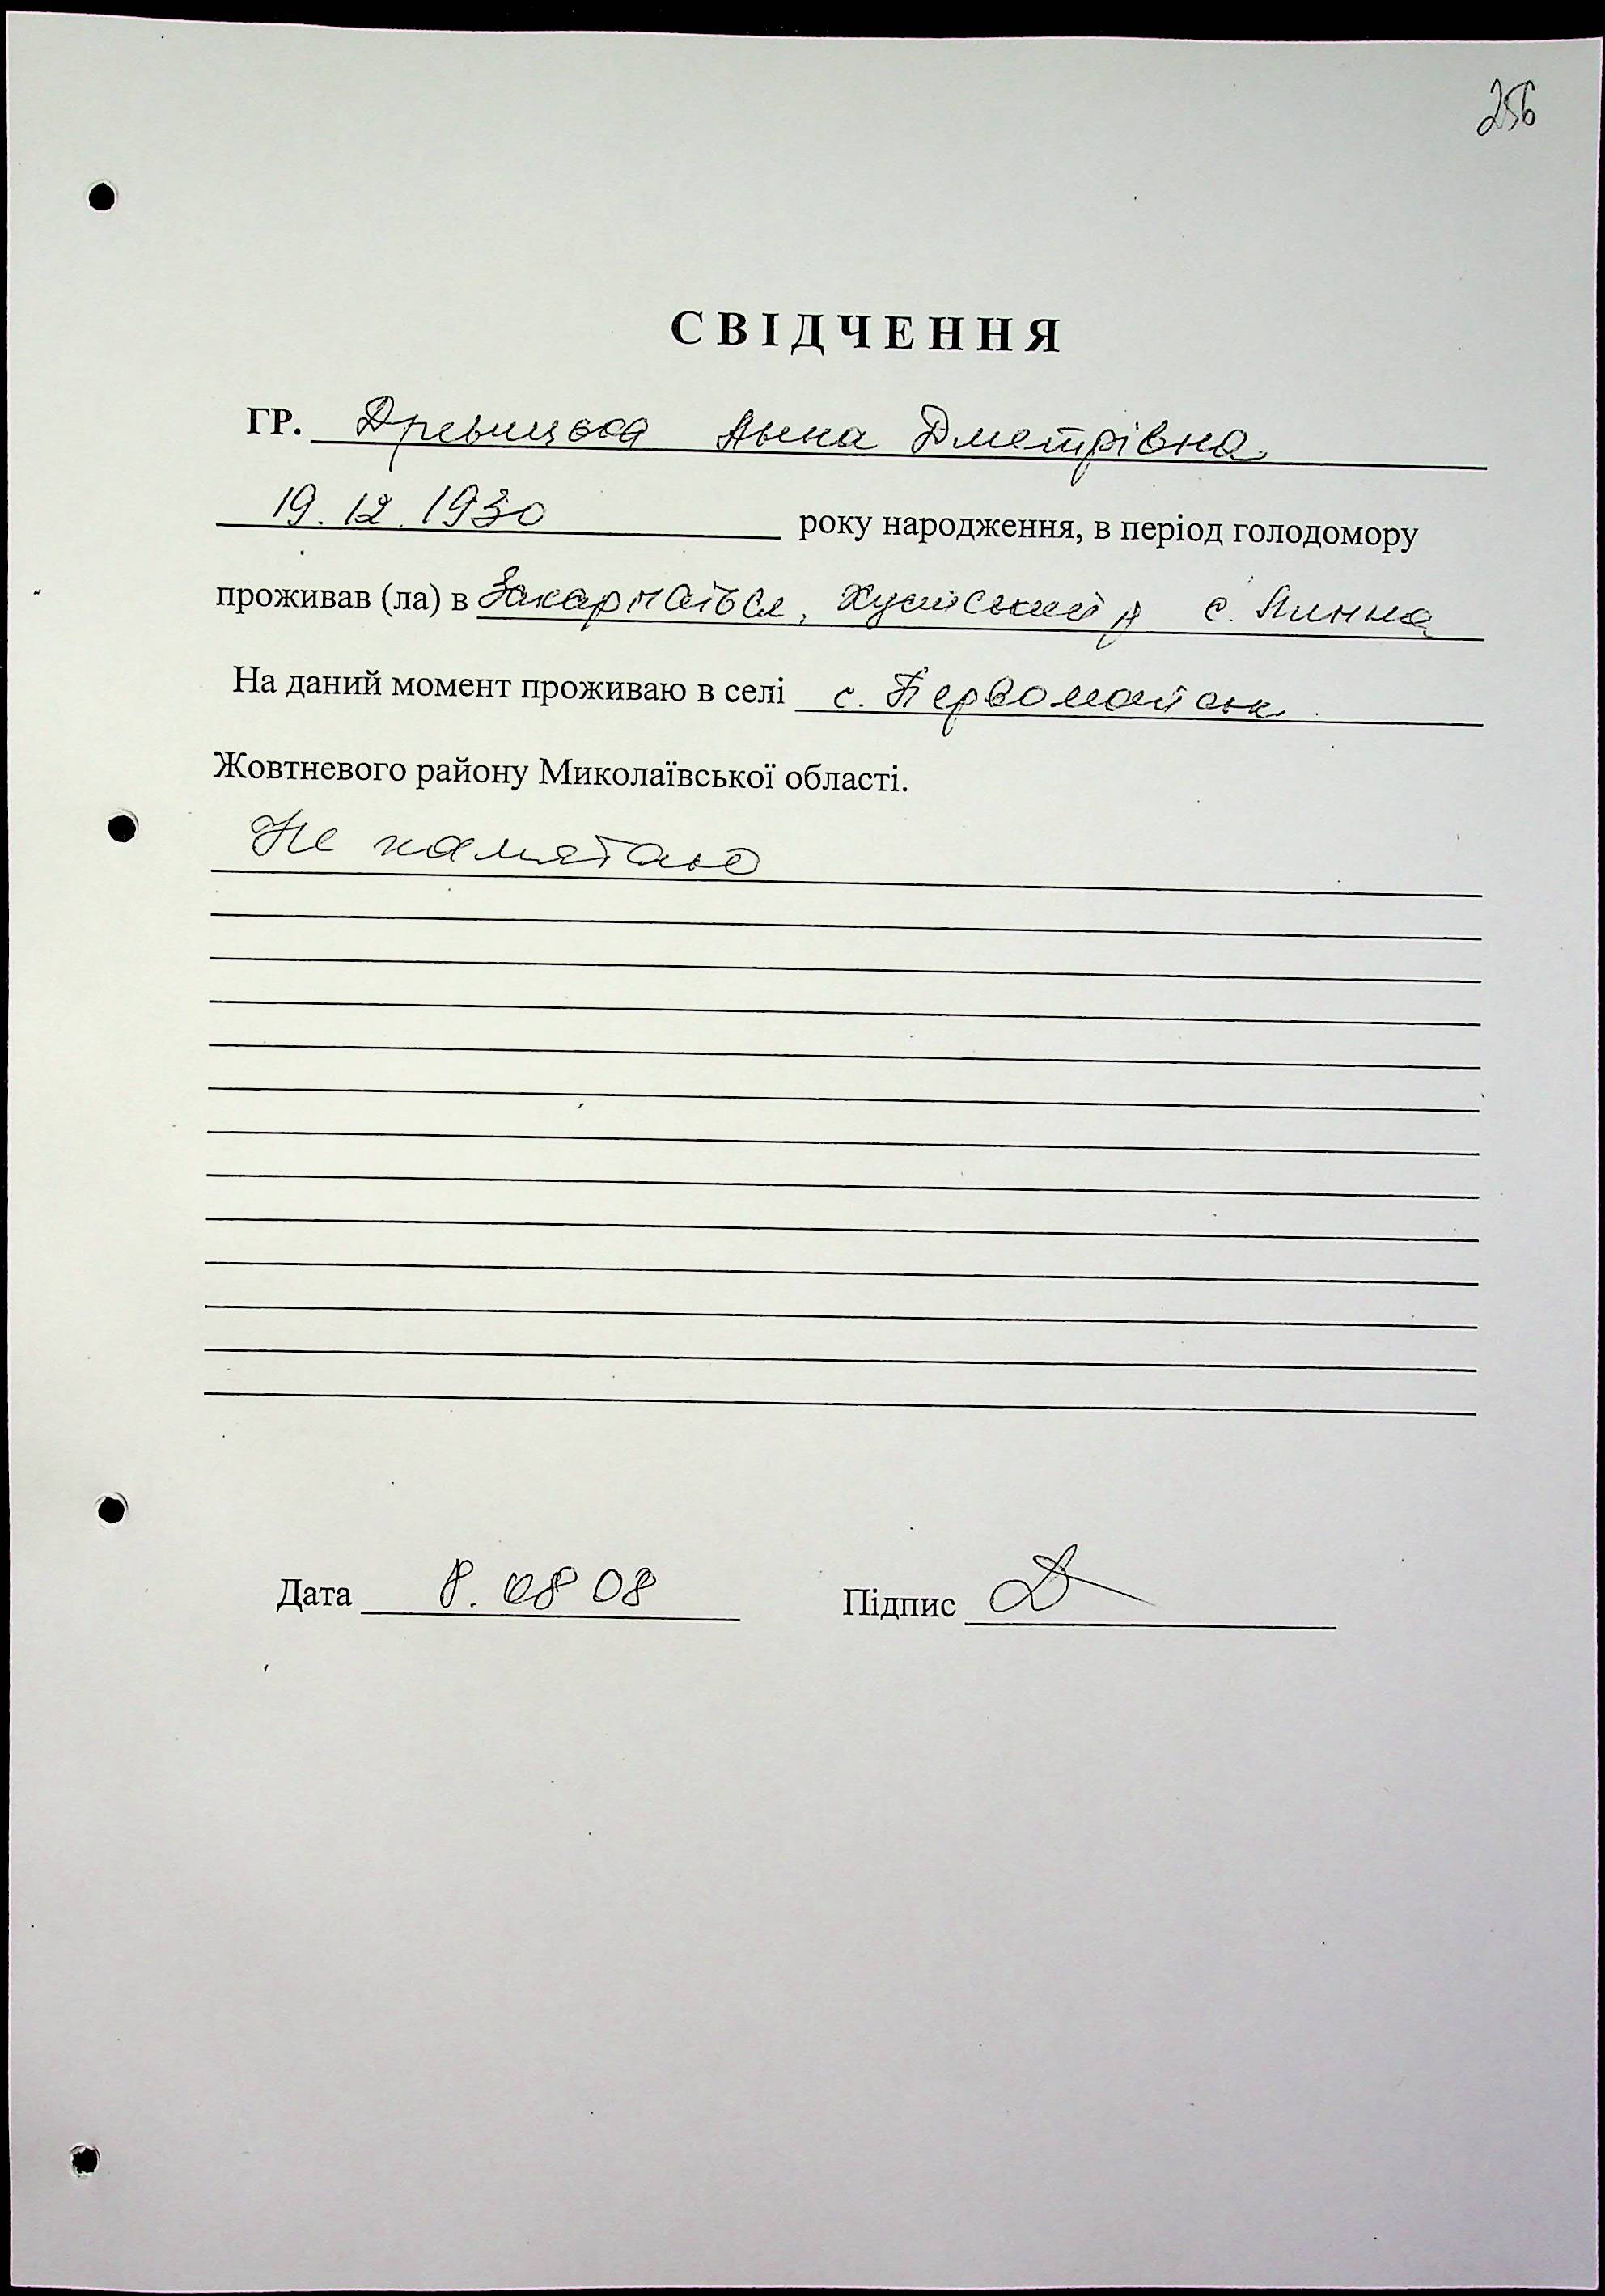 256
СВІДЧЕННЯ
ГР. Анна Дметрівна
19.12.1930 року народження, в період голодомору
проживав (ла) в Закарпаттє, р с.
На даний момент проживаю в селі с. Первомайськ
Жовтневого району Миколаївської області.
Не памятаю
Дата 8.08 08 Підпис